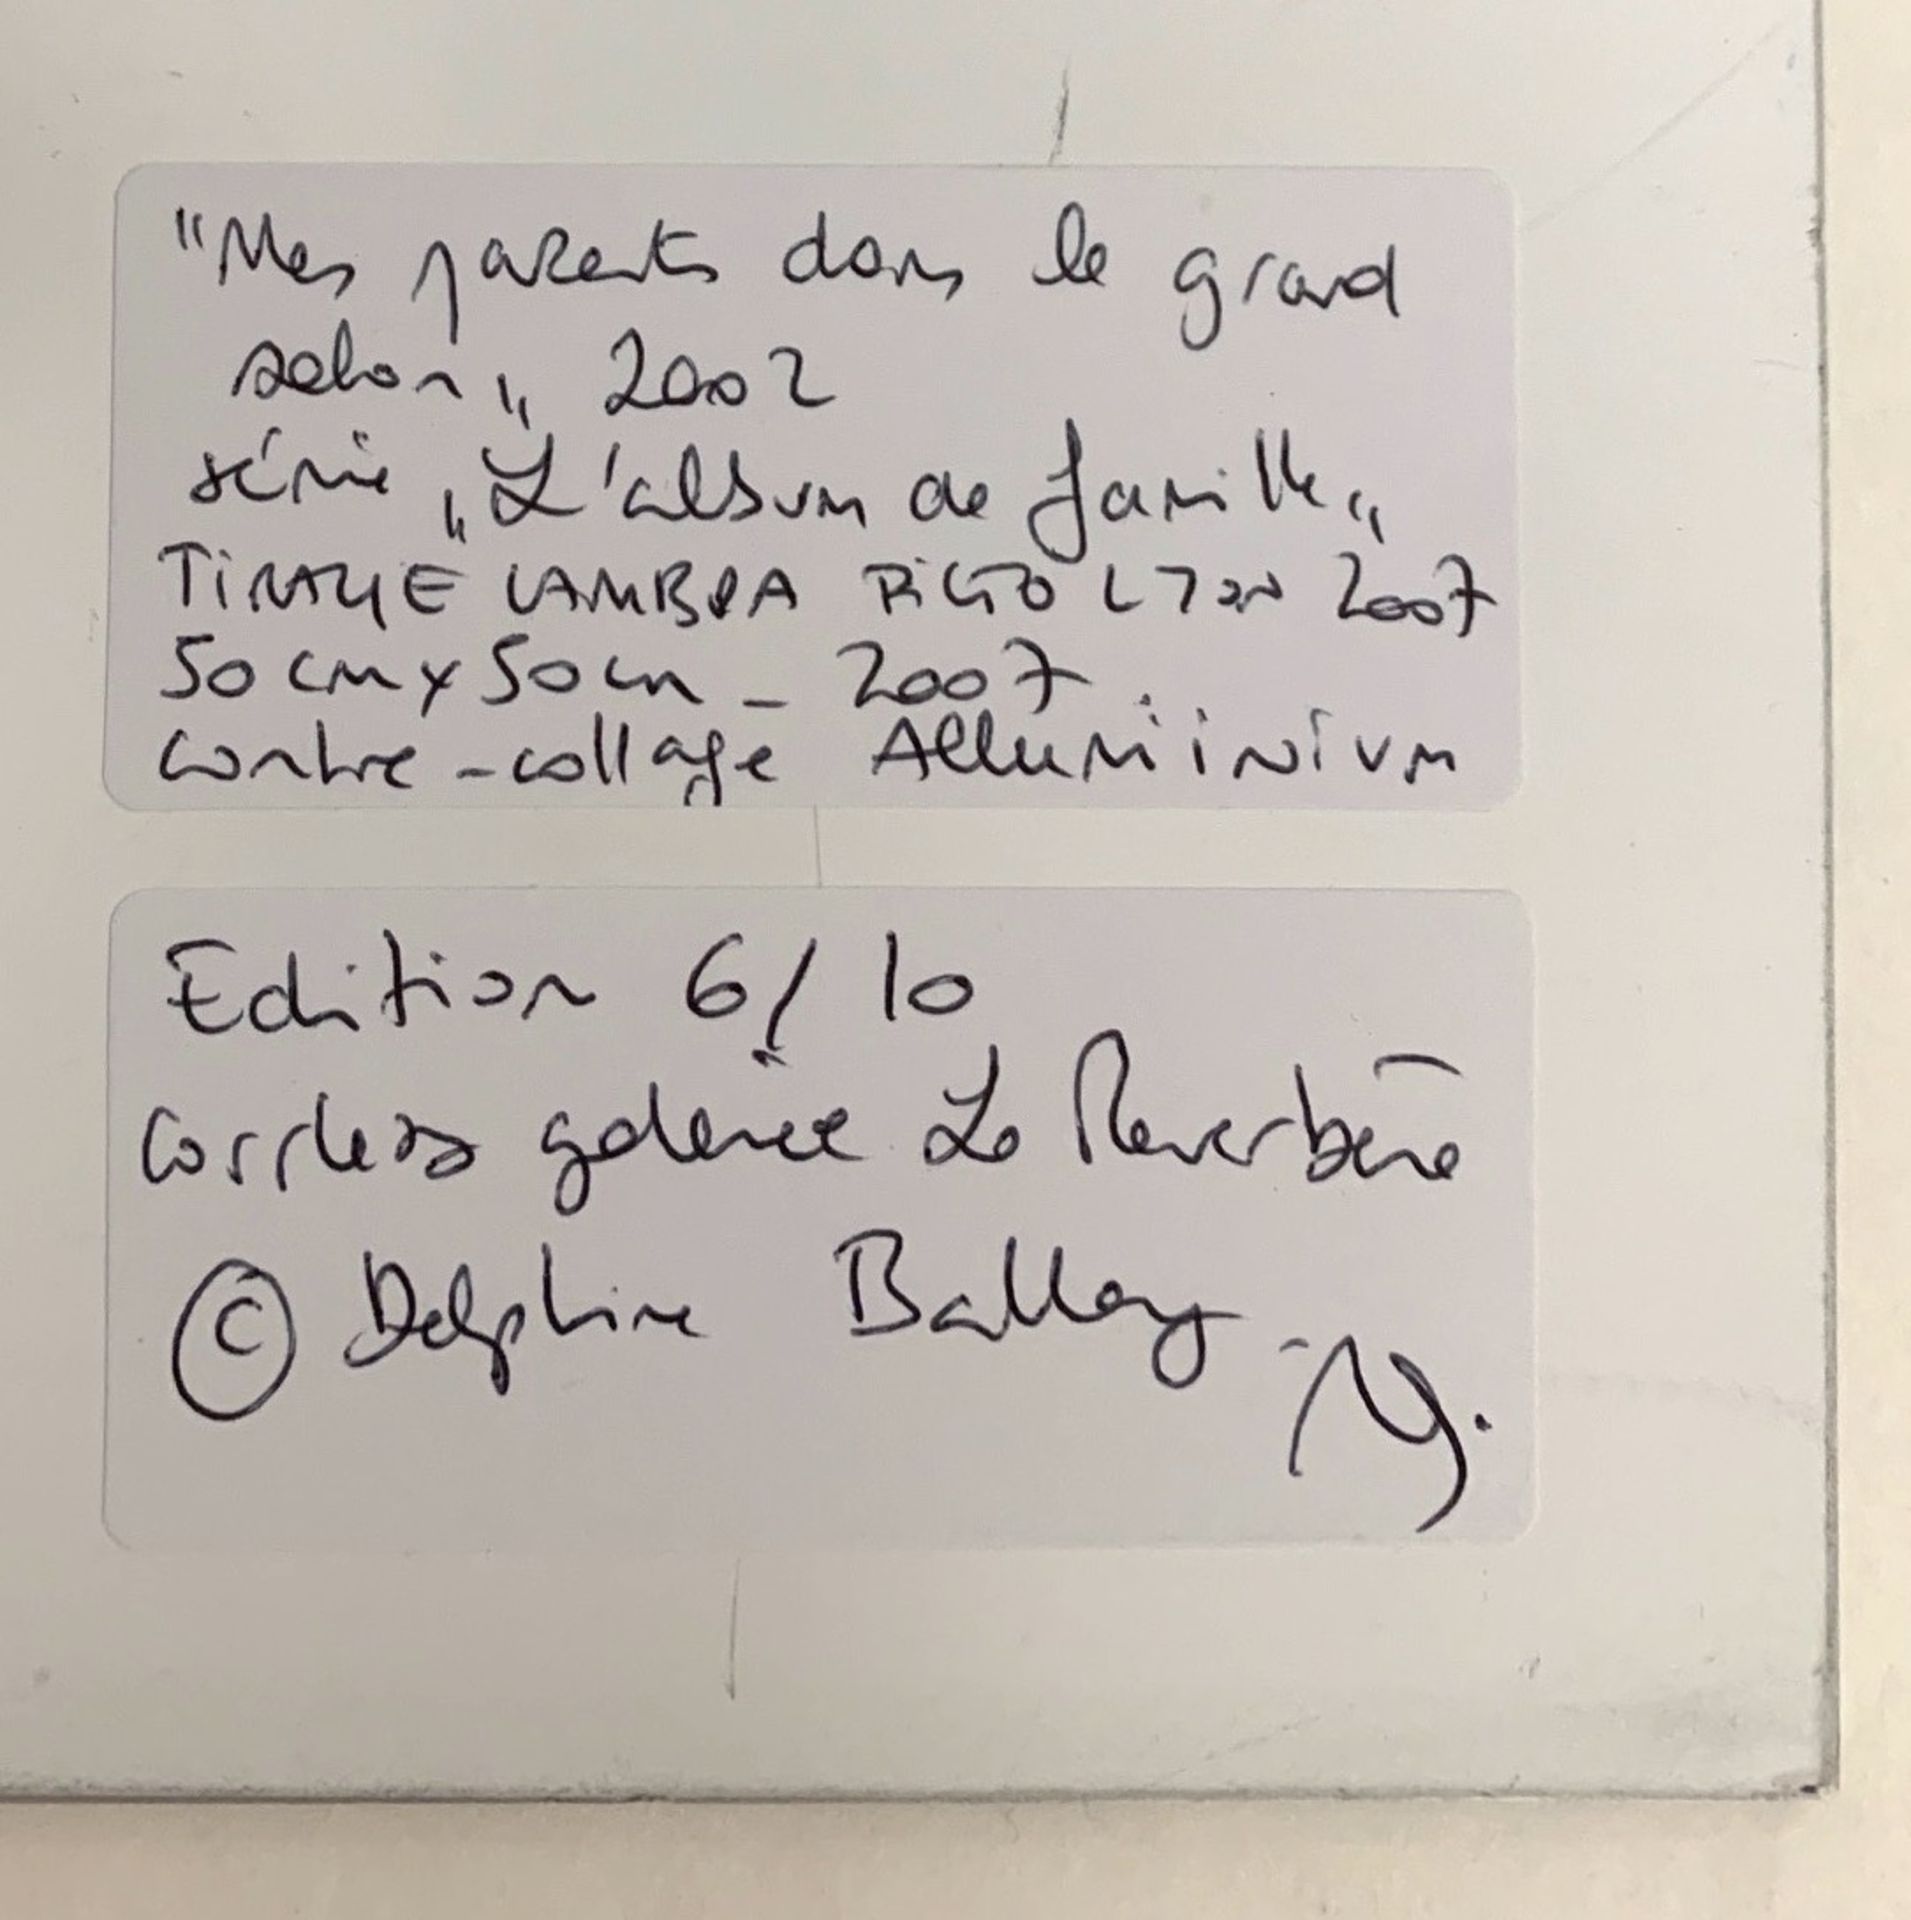 "Mes parents dans le grand
salon" 2002
série "L'album de famille"
TIRAGE LAMBDA PICTO LYON 2007
50 cm x 50 cm _ 2007.
contre-collage Alluminium
Edition 6/10
galerie Le Réverbère
© Delphine Balley